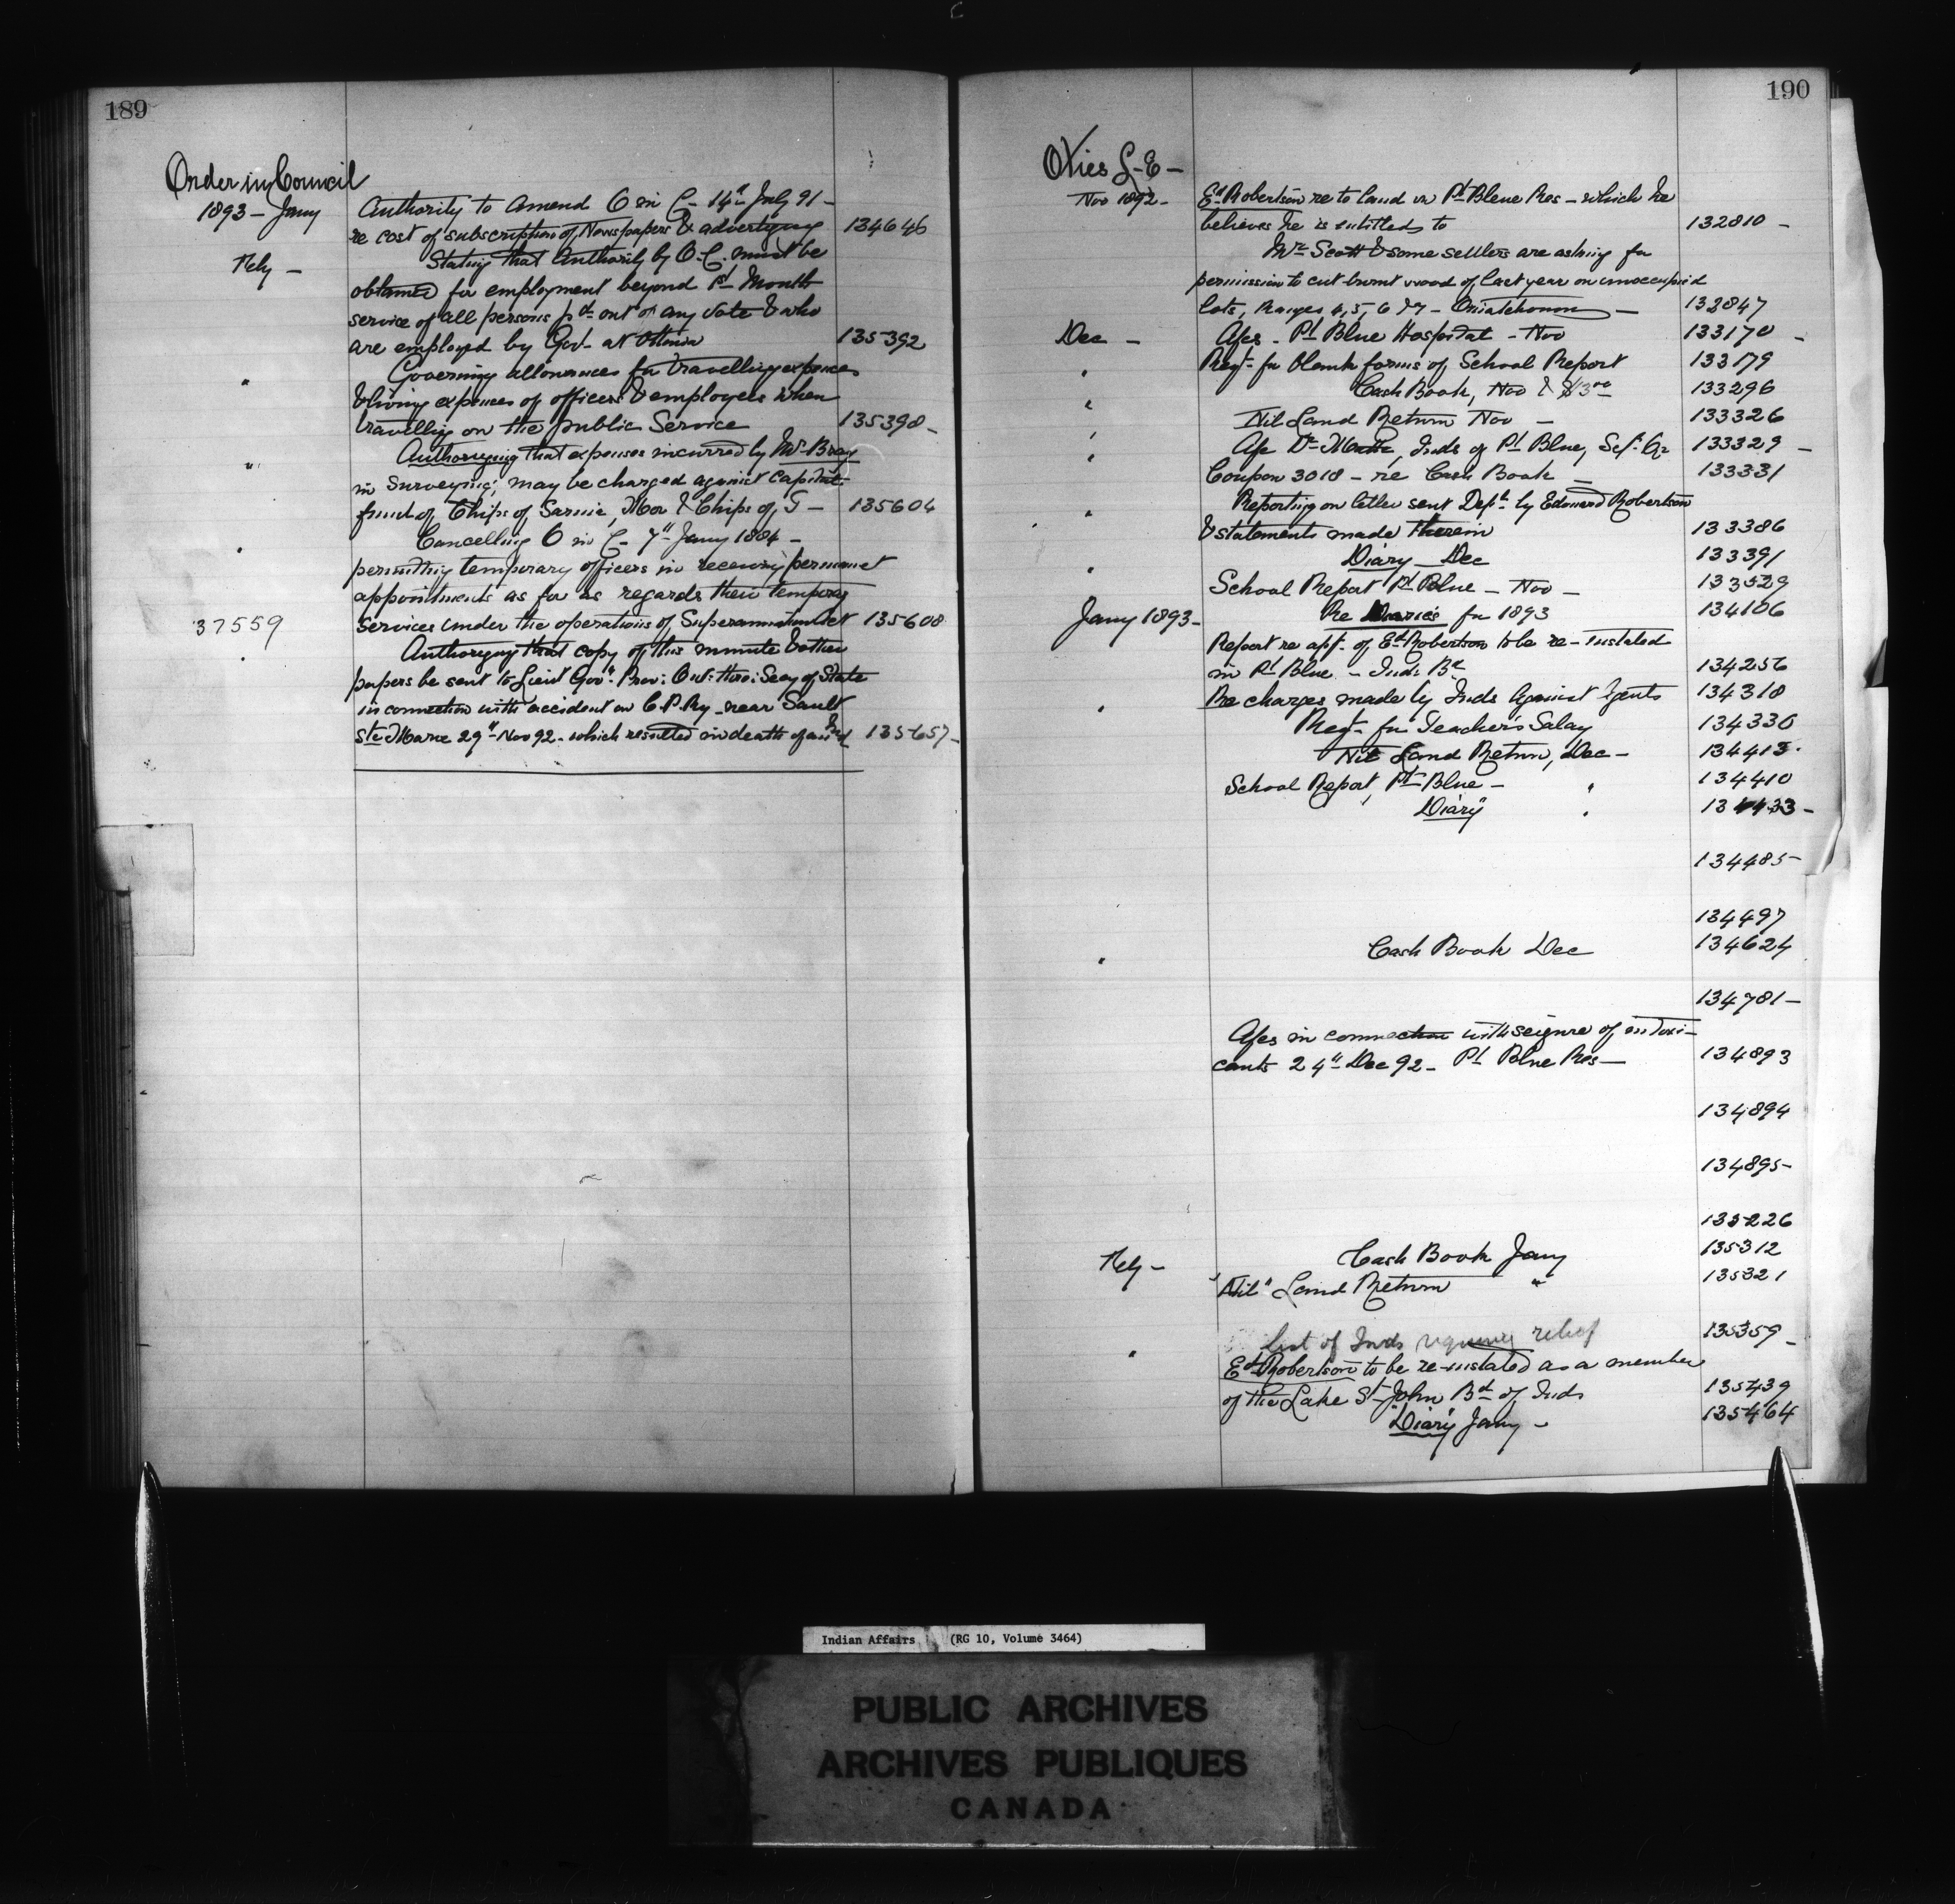 189
Order in Council
1893 - Jany
Authority to amend O in C - 14th July 91 -
re cost of subscription of Newspapers & advertising 134646
Feby -
Stating that Authority by O.C. must be
obtained for employment beyond 1st Month
service of all persons pd out of any vote & who
are employed by Govt at Ottawa 135392
"
Governing allowances for travelling expences
& living expences of officers & employees when
travelling on the public Service 135398 -
"
Authorizing that expenses incurred by Mr Bray
in surveying, may be charged against Capital
fund of Chips of Sarnia, & Chips of S - 135604
"
Cancelling O in C - 7th Jany 1884 -
permitting temporary officers in receiving permanent
appointments as far as regards their tempory
37559
services under the operations of Superannuation Act 135608
"
Authorizing that copy of this minute & other
papers be sent to Lieut Govr Prov: Ont: thro: Secy of State
in connection with accident on C.P.Ry - near Sault
Ste Marie 29th Nov 92 - which resulted in death of an Ind 135657 -
190
Nov 1892 -
Ed Robertson re to land in Pt Bleue Res - which he
believes he is entitled to 132810 -
Mr Scott & some settlers are asking for
permission to cut burnt wood of last year on unoccupied
lots, Ranges 4, 5, 6 & 7 - Ouiatchouan - 132847
Dec -
A/cs - Pt Blue Hospital - Nov 133170 -
"
Reqt - for blank forms of School Report 133179
Cash Book, Nov & $13.00 133296
"
Nil Land Return Nov - 133326
"
A/c Dr Inds of Pt Blue, Sep. Qr 133329 -
"
Coupon 3018 - re Cash Book - 133331
"
Reporting on letter sent Dept by Edward Robertson
& statements made therein 133386
Diary - Dec 133391
"
School Report Pt Blue - Nov - 133529
Jany 1893 -
Re Diaries for 1893 134106
Report re app. of Ed Robertson to be re-instated
in Pt Blue - Ind: Bd 134256
"
Re charges made by Inds against Agents 134318
Reqt - for Teacher's Salary 134336
Nil Land Return, Dec - 134413
School Report, Pt Blue - " 134410
Diary " 134433 -
134485 -
134497
"
Cash Book Dec 134624
134781 -
A/cs in connection with seizure of intoxi-
cants 24th Dec 92 - Pt Blue Res - 134893
134894
134895 -
135226
Feby -
Cash Book Jany 135312
"Nil" Land Return " 135321
list of Inds relief 135359 -
"
Ed Robertson to be re-instated as a member
of the Lake St John Bd of Inds 135439
"Diary" Jany - 135464
Indian Affairs (RG 10, Volume 3464)
PUBLIC ARCHIVES
ARCHIVES PUBLIQUES
CANADA